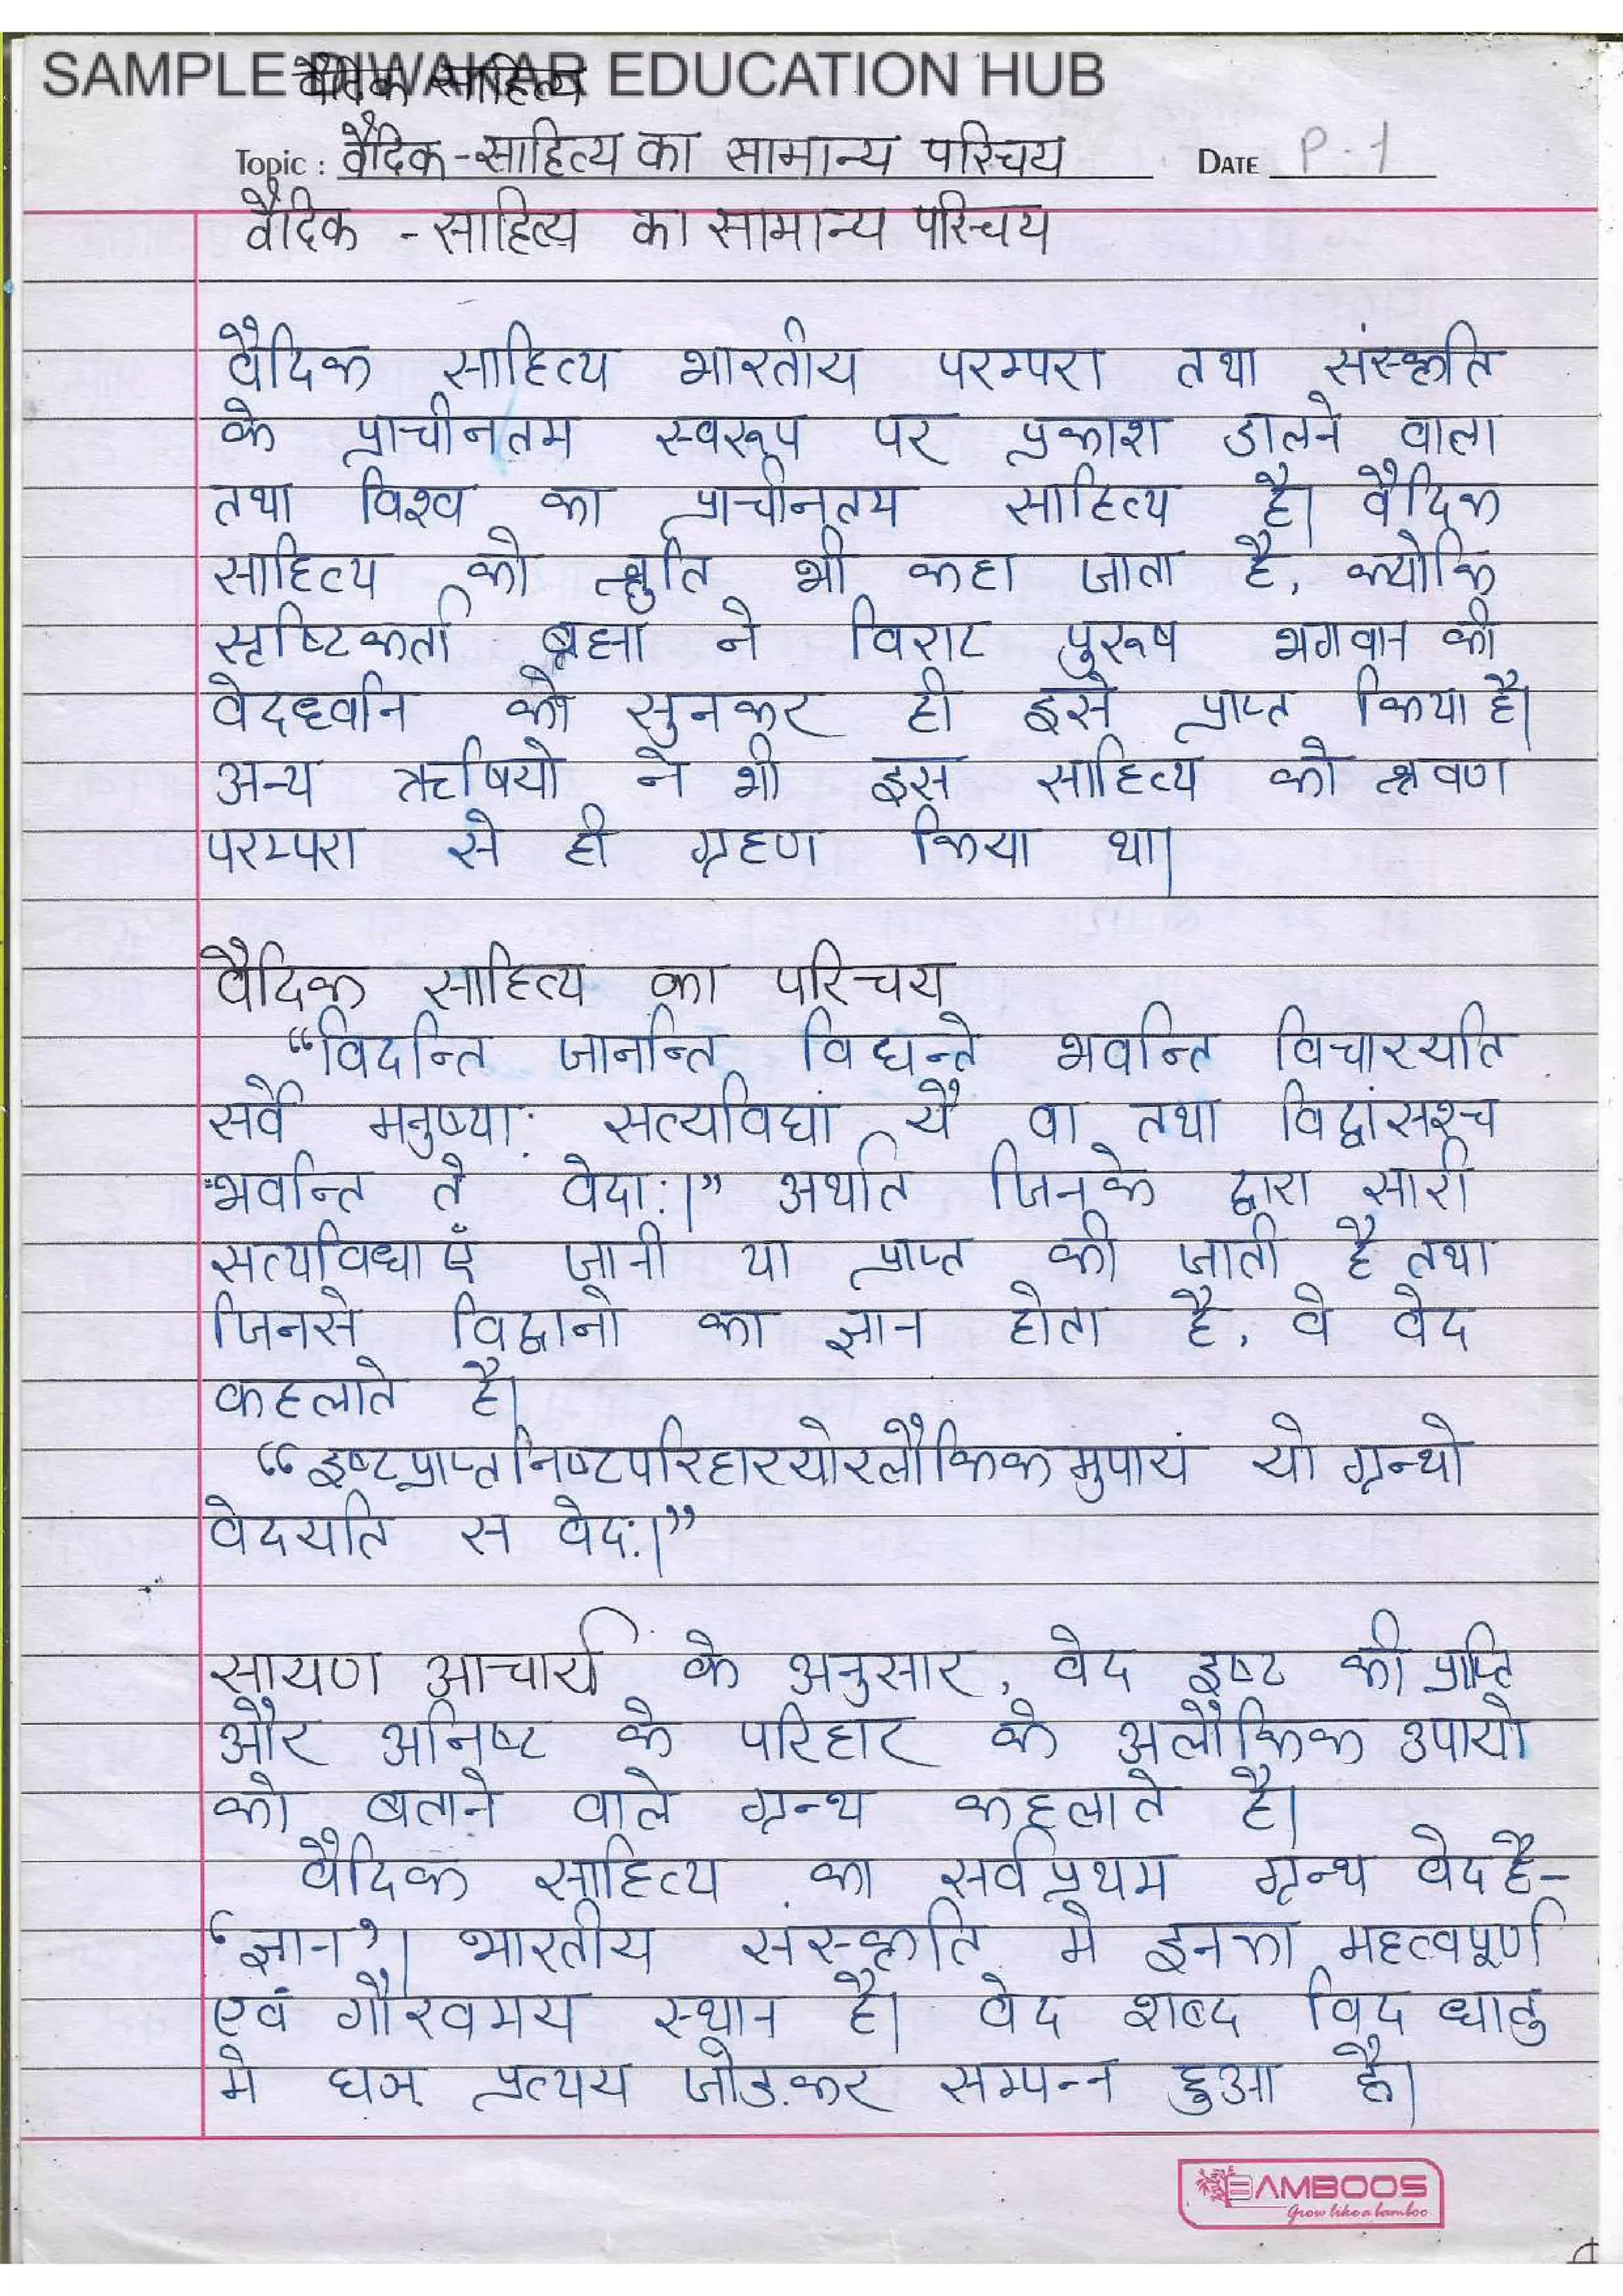 SAMPLE DIWAKAR EDUCATION HUB
वैदिक साहित्य
Topic : वैदिक-साहित्य का सामान्य परिचय DATE P-1
वैदिक - साहित्य का सामान्य परिचय
वैदिक साहित्य भारतीय परम्परा तथा संस्कृति
के प्राचीनतम स्वरूप पर प्रकाश डालने वाला
तथा विश्व का प्राचीनतय साहित्य है। वैदिक
साहित्य को श्रुति भी कहा जाता है, क्योकि
सृष्टिकर्ता ब्रह्मा ने विराट पुरूष भगवान की
वेदध्वनि को सुनकर ही इसे प्राप्त किया है।
अन्य ऋषियो ने भी इस साहित्य को श्रवण
परम्परा से ही ग्रहण किया था।
वैदिक साहित्य का परिचय
“विदन्ति जानन्ति विद्यन्ते भवन्ति विचारयति
सर्वे मनुष्या: सत्यविद्यां यै वा तथा विद्वांसश्च
भवन्ति ते वेदा:।” अर्थात जिनके द्वारा सारी
सत्यविधाएँ जानी या प्राप्त की जाती है तथा
जिनसे विद्वानो का ज्ञान होता है, वे वेद
कहलाते है।
“इष्टप्राप्तनिष्टपरिहारयोरलौकिकमुपायं यो ग्रन्थो
वेदयति स वेद:।”
सायण आचार्य के अनुसार, वेद इष्ट की प्राप्ति
और अनिष्ट के परिहार के अलौकिक उपायो
को बताने वाले ग्रन्थ कहलाते है।
वैदिक साहित्य का सर्वप्रथम ग्रन्थ वेद है-
‘ज्ञान’। भारतीय संस्कृति मे इनका महत्वपूर्ण
एवं गौरवमय स्थान है। वेद शब्द विद धातु
मे घञ् प्रत्यय जोड़कर सम्पन्न हुआ है।
BAMBOOS
Grow like a bamboo